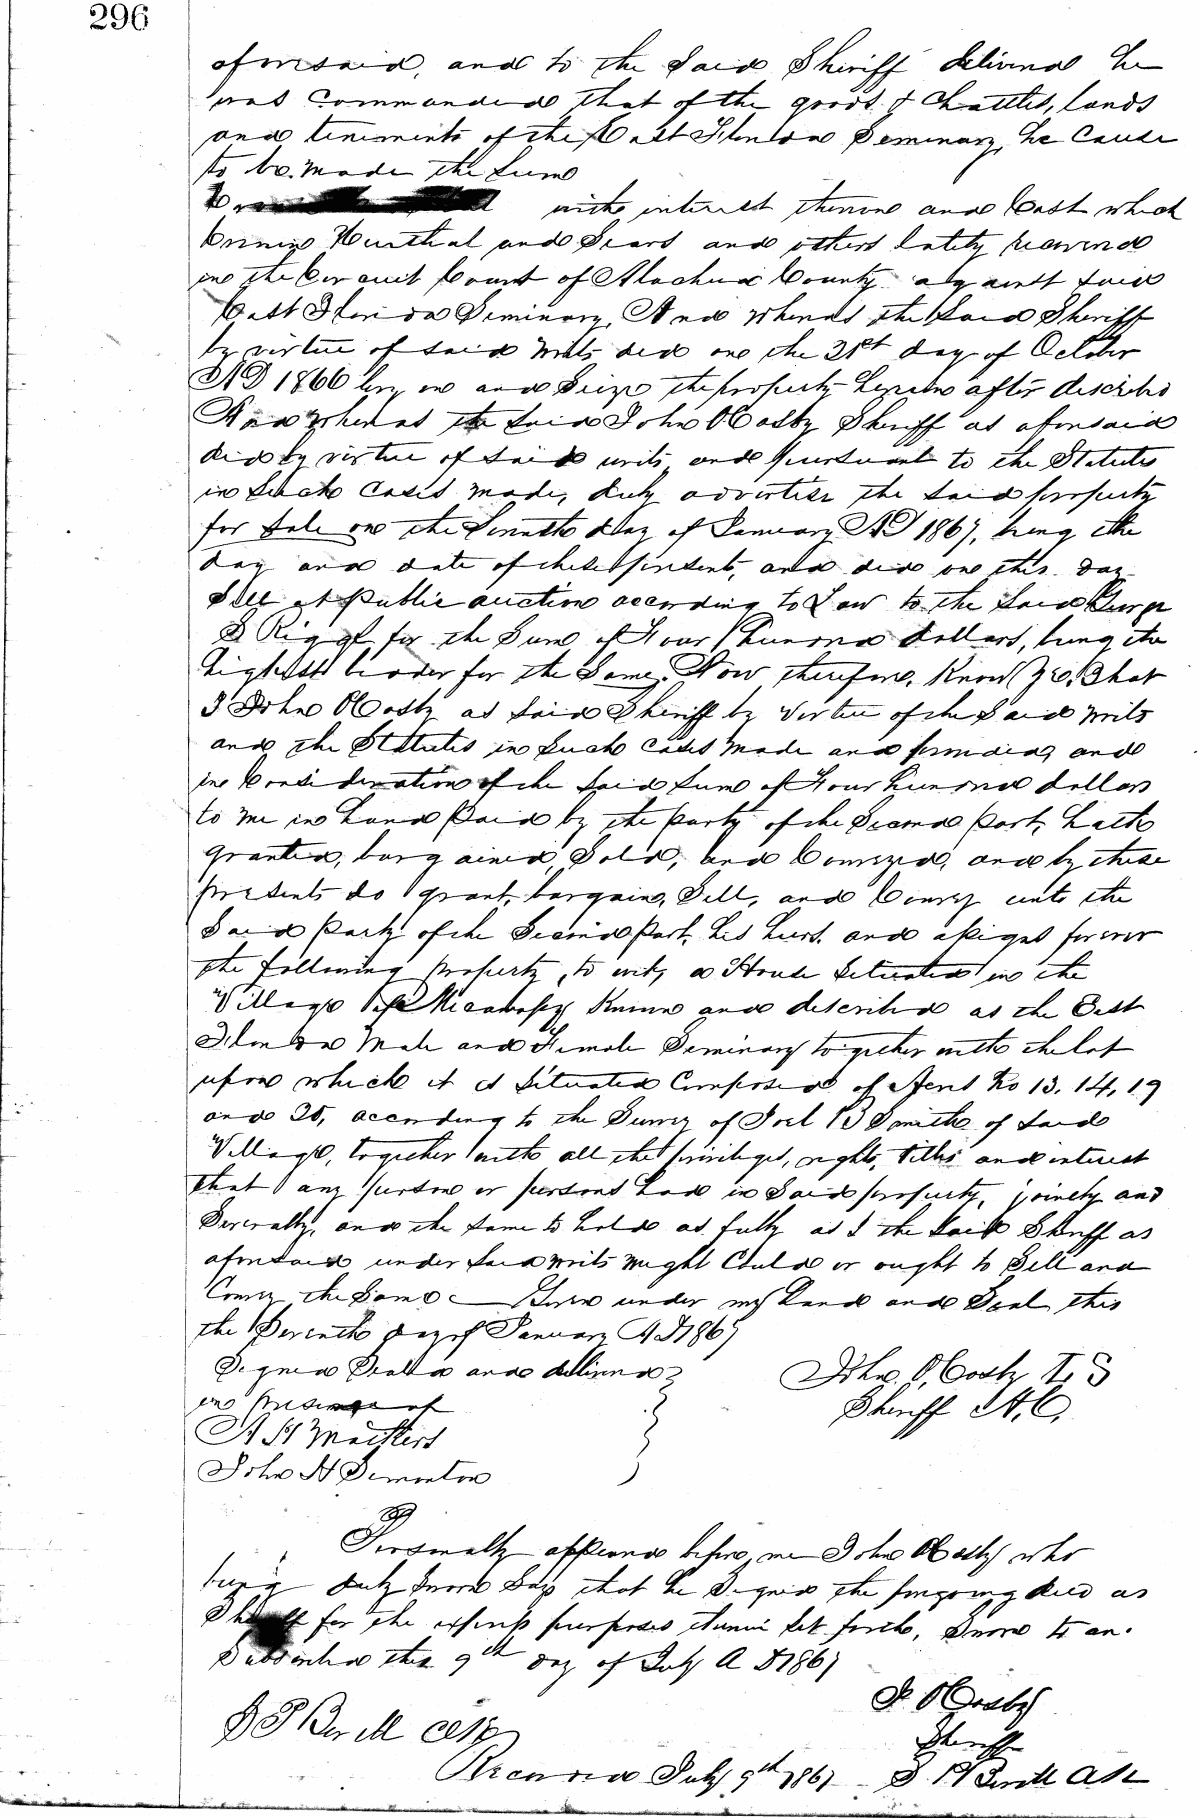 296
aforesaid, and to the Said Sheriff delivered he
was Commanded that of the goods & Chattles, lands
and tenements of the East Florida Seminary, he Cause
to be made the Sum
with interest thereon and Cost which
and Sears and others lately recovered
in the Circuit Court of Alachua County against Said
East Florida Seminary, And whereas the Said Sheriff
by virtue of Said writs did on the 31st day of October
AD 1866 levy on and Seize the property herein after describd
And whereas the Said John O Cosby Sheriff as aforesaid
did by virtue of Said writs, and pursuant to the Statutes
in Such Cases made, duly advertise the Said property
for Sale on the Seventh day of January AD 1867, being the
day and date of these presents, and did on this day
Sell at Public auction according to Law to the Said
for the Sum of Four Hundred dollars, being the
highest bidder for the Same, Now therefore, Know Ye, That
I John O Cosby as Said Sheriff by Virtue of the Said writs
and the Statutes in Such Cases made and provided, and
in Consideration of the Said Sum of Four hundred dollars
to me in hand Paid by the party of the Second Part, hath
granted, bargained, Sold, and Conveyed, and by these
presents do grant, bargain, Sell, and Convey unto the
Said Party of the Second Part, his heirs and assigns forever
the following property, to wit, a House Situated in the
Village of Micanopy Known and described as the East
Florida Male and Female Seminary together with the lot
upon which it is Situated Composed of No 13, 14, 19
and 20, according to the Survey of Joel B Smith of Said
Village, together with all the privileges, rights, titles and interest
that any person or persons had in Said property, jointly and
Severally, and the Same to hold as fully as I the Said Sheriff as
aforesaid under Said writs might Could or ought to Sell and
Convey the Same Given under my hand and Seal this
the Seventh day of January AD 1867
Signed Sealed and delivered
in presence of
John O, Cosby L. S
Sheriff A. C.
A H Mathers
John H Simonton
Personally appeared before me John O Cosby who
being duly Sworn Says that he Signed the foregoing deed as
Sheriff for the express purposes therein Set forth, Sworn to an
Subscribed this 9th day of July A D 1867
J. O Cosby
Sheriff
Recorded July 9th 1867